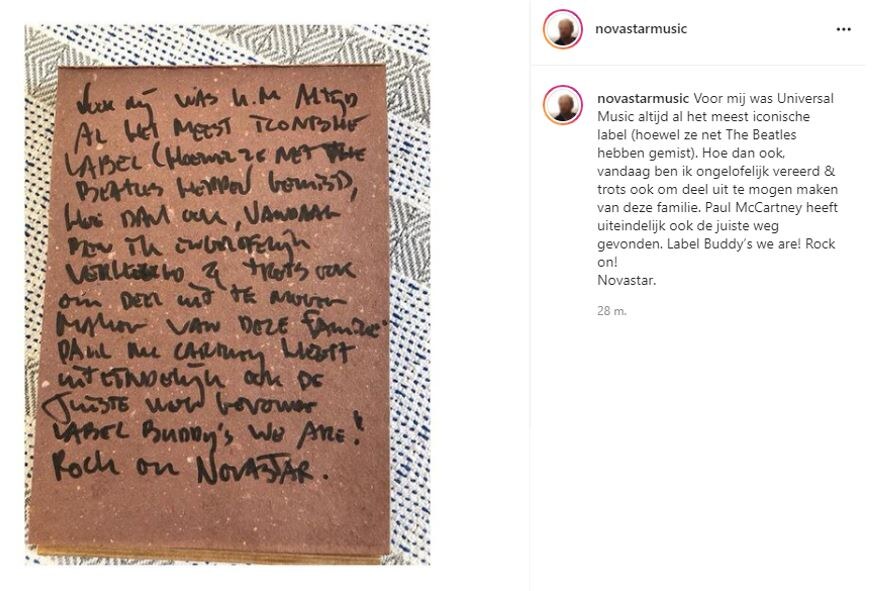 Voor mij WAS U.M ALTIJD
AL HET MEEST ICONISCHE
LABEL (HOEWEL ZE NET THE
BEATLES HEBBEN GEMIST),
HOE DAN OOK, VANDAAG
BEN IK ONGELOFELIJK
VEREERD & TROTS OOK
om DEEL uit TE MOGEN
MAKEN VAN DEZE FAMILIE.
PAUL Mc CARTNEY HEEFT
UITEINDELIJK OOK DE
JUISTE WEG GEVONDEN
LABEL BUDDY'S WE ARE!
ROCK on NOVASTAR.
novastarmusic
novastarmusic Voor mij was Universal
Music altijd al het meest iconische
label (hoewel ze net The Beatles
hebben gemist). Hoe dan ook,
vandaag ben ik ongelofelijk vereerd &
trots ook om deel uit te mogen maken
van deze familie. Paul McCartney heeft
uiteindelijk ook de juiste weg
gevonden. Label Buddy's we are! Rock
on!
Novastar.
28 m.